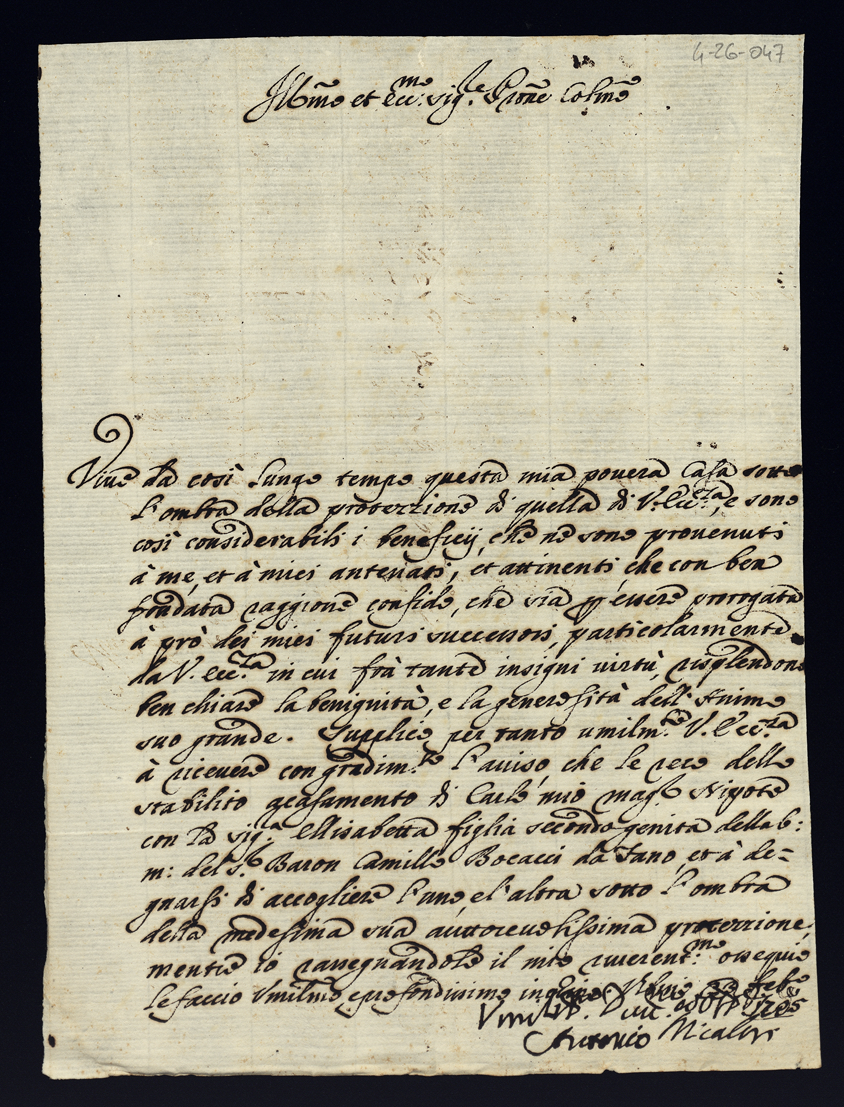 4-26-047
Illmo et ecc.mo sig.re Prone Colmo
Vive da così lungo tempo questa mia povera Casa sotto
l'ombra della protezzione di quella di V. Ecc.za, e sono
così considerabili i beneficij, che ne sono provenuti
à me, et à miei antenati, et attinenti, che con ben
fondata raggione confido, che sia p essere prorogata
à prò dei miei futuri successori, particolarmente
da V. ecc.za in cui frà tante insigni virtù, risplendono
ben chiare la benignità, e la generosità dell'Animo
suo grande. Supplico per tanto umilm.te V. Ecc.za
à ricevere con gradim.to l'avviso, che le reco dello
stabilito acasamento di Carlo mio mag.r Nipote
con la sig.ra Ellisabetta figlia secondo genita della b:
m: del S.r Baron Camillo Bocacci da Fano, et à de=
gnarsi di accogliere l'uno, e l'altra sotto l'ombra
della medesima sua auttorevolissima protezzione,
mentre io rassegnandole il mio riverent.mo ossequio
le faccio Umilmo, e profondissimo inchino Febro
1705
Antonio